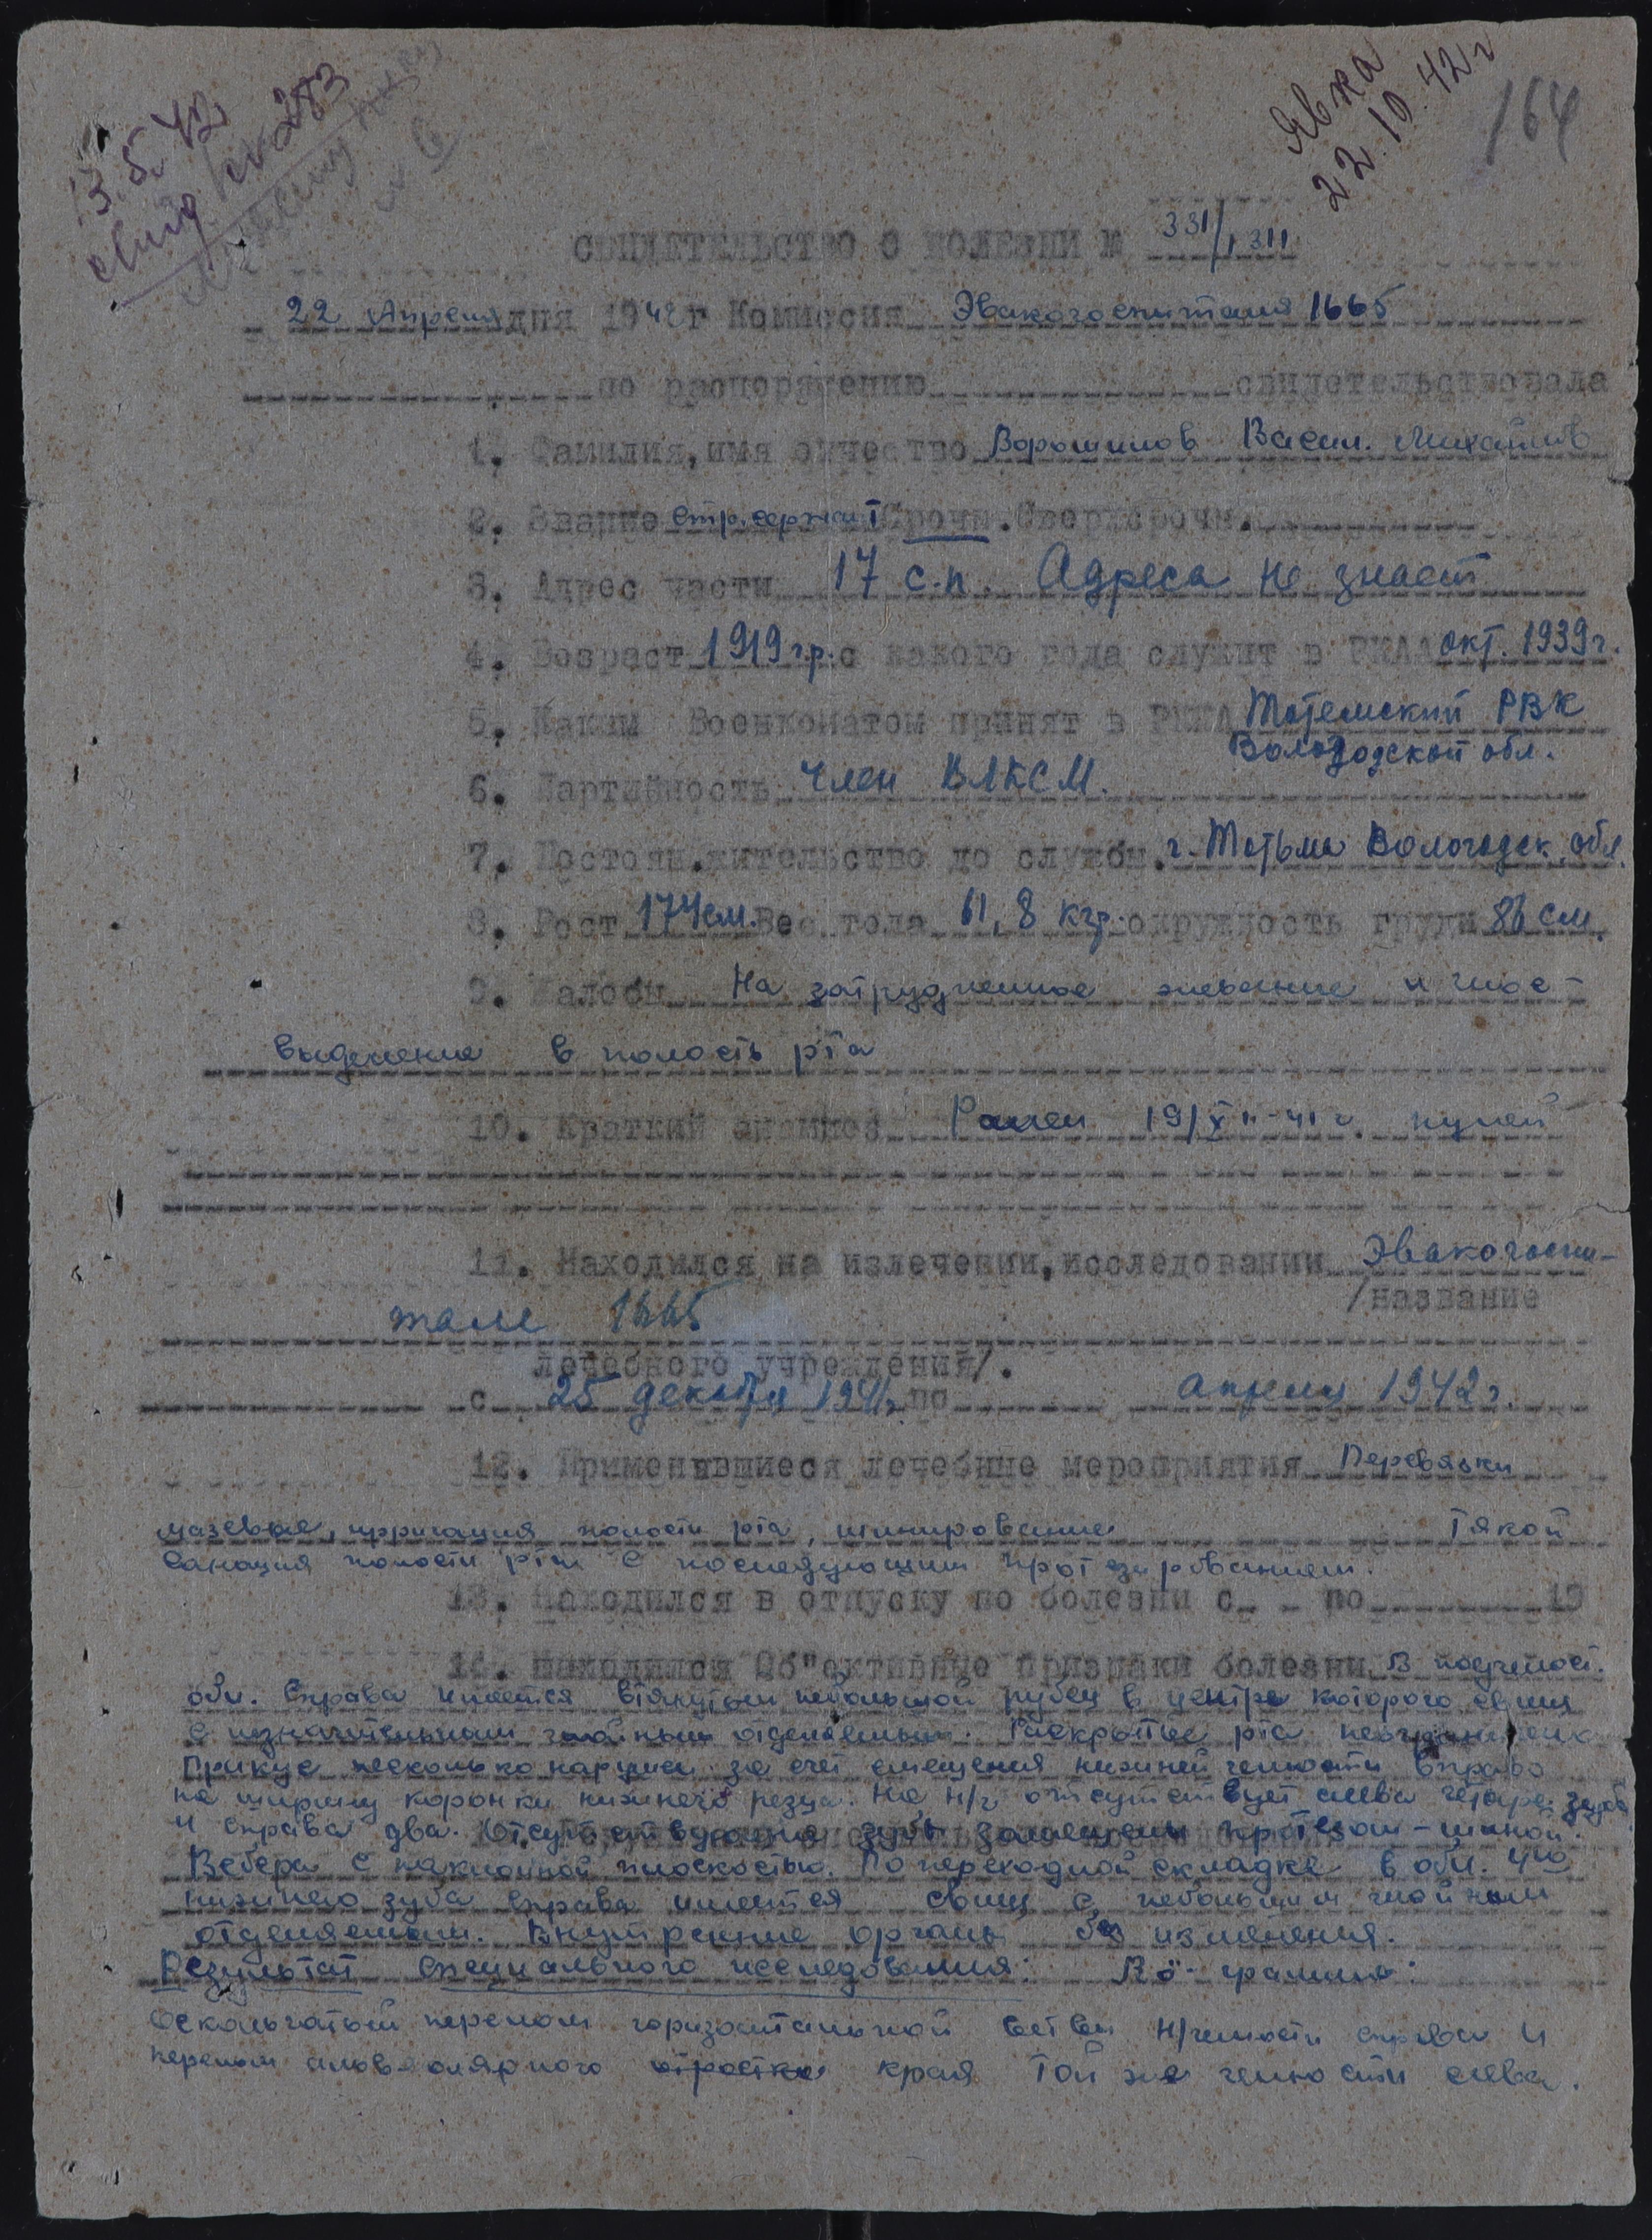 3.5.42
Явка
22.10.42 г
164
СВИДЕТЕЛЬСТВО О БОЛЕЗНИ № 331/1311
22 Апреля дня 1942 г Комиссия Эвакогоспиталя 1665
по распоряжению свидетельствовала
1. Фамилия, имя отчество Ворошилов Васил. Михайлов
2. Звание стр. сержант Срочн. Сверхсрочн.
3. Адрес части 17 с.п. Адреса не знает
4. Возраст 1919 г.р. с какого года служит в РККА окт. 1939 г.
5. Каким Военкоматом принят в РККА Тотемский РВК
Вологодской обл.
6. Партийность член ВЛКСМ.
7. Постоян. жительство до службы. г. Тотьма Вологодск. обл.
8. Рост 174 см. Вес тела 61,8 кгр. окружность груди 86 см.
9. Жалобы На затрудненное жевание и гное-
выделение в полость рта
10. Краткий анамнез Ранен 19/XII-41 г. пулей
11. Находился на излечении, исследовании Эвакогоспи-
/название
тале 1665
лечебного учреждения/.
с 25 декабря 1941 г. по апреля 1942 г.
12. Применявшиеся лечебные мероприятия Перевязки
мазевые, ирригация полости рта, шинирование Тякой
Санация полости рта с последующим протезированием.
13. Находился в отпуску по болезни с по 19
14. Находился Об"ективные признаки болезни В подчелюст.
обл. Справа имеется втянутый небольшой рубец в центре которого свищ
с незначительным гнойным отделяемым. Раскрытие рта неограничено
Прикус несколько нарушен за счет смещения нижней челюсти вправо
на ширину коронки нижнего резца. На н/ч отсутствует слева четыре зуба
и справа два. Отсутствующие зубы замещены протезом-шиной
Вебера с наклонной плоскостью. По переходной складке в обл. 4го
нижнего зуба справа имеется свищ с небольшим гнойным
отделяемым. Внутренние органы без изменения.
Результат специального исследования: Rö-грамма:
Оскольчатый перелом горизонтальной ветви н/челюсти справа и
перелом альвеолярного отростка края той же челюсти слева.